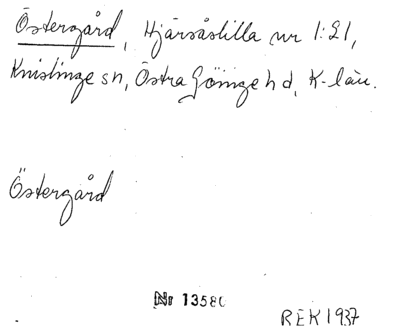 Östergård, Hjärsåslilla nr 1:21,
Knislinge sn, Östra Göinge hd, K-län.
Östergård
Nr 13580
REK 1937